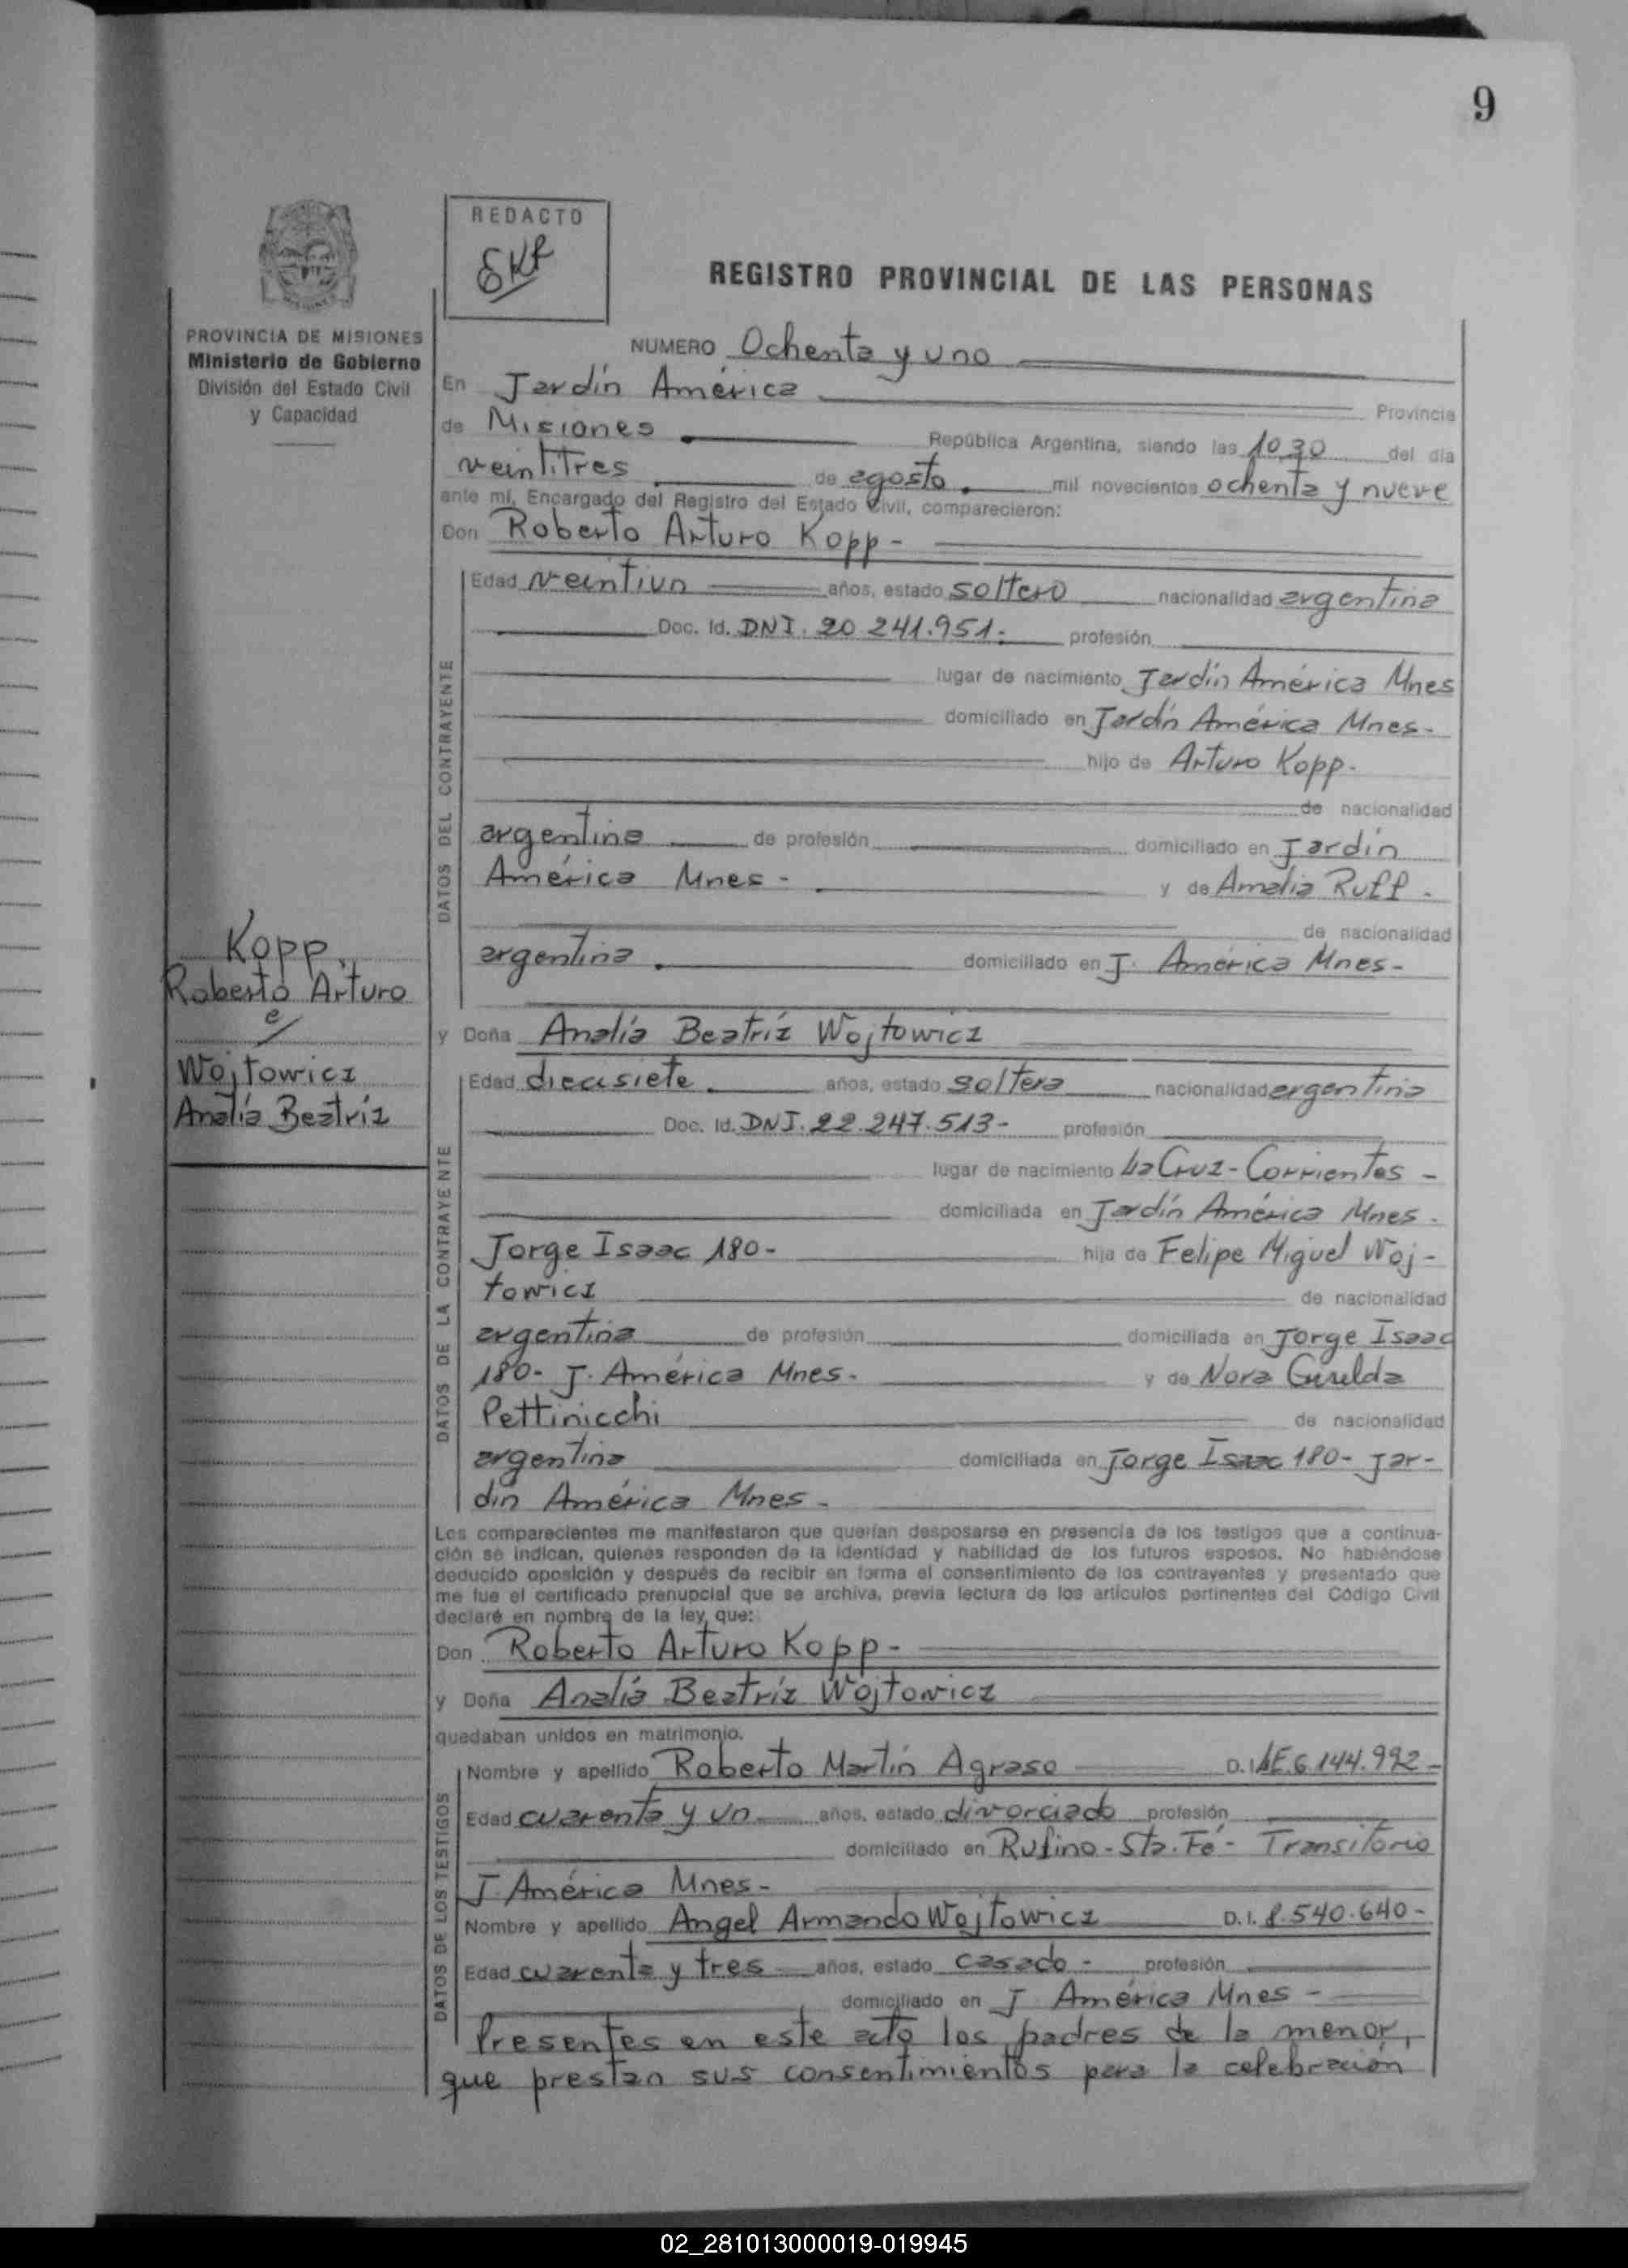 9
REDACTO
SKR
REGISTRO PROVINCIAL DE LAS PERSONAS
PROVINCIA DE MISIONES
Ministerio de Gobierno
División del Estado Civil
y Capacidad
NUMERO Ochenta y uno
En Jardín América Provincia
de Misiones República Argentina, siendo las 10.30 del día
veintitres de agosto mil novecientos ochenta y nueve
ante mí, Encargado del Registro del Estado Civil, comparecieron:
Don Roberto Arturo Kopp -
DATOS DEL CONTRAYENTE
Edad veintiun años, estado soltero nacionalidad argentina
Doc. Id. DNI. 20.241.951. profesión
lugar de nacimiento Jardín América Mnes
domiciliado en Jardín América Mnes-
hijo de Arturo Kopp.
de nacionalidad
argentina de profesión domiciliado en Jardín
América Mnes - y de Amalia Ruff -
de nacionalidad
argentina domiciliado en J. América Mnes-
Kopp,
Roberto Arturo
e/
Wojtowicz
Analía Beatríz
y Doña Analía Beatríz Wojtowicz
DATOS DE LA CONTRAYENTE
Edad diecisiete años, estado soltera nacionalidad argentina
Doc. Id. DNI. 22.247.513- profesión
lugar de nacimiento La Cruz-Corrientes -
domiciliada en Jardín América Mnes.
Jorge Isaac 180- hija de Felipe Miguel Woj-
towicz de nacionalidad
argentina de profesión domiciliada en Jorge Isaac
180- J. América Mnes- y de Nora Griselda
Pettinicchi de nacionalidad
argentina domiciliada en Jorge Isaac 180- Jar-
dín América Mnes-
Los comparecientes me manifestaron que querían desposarse en presencia de los testigos que a continua-
ción se indican, quienes responden de la identidad y habilidad de los futuros esposos. No habiéndose
deducido oposición y después de recibir en forma el consentimiento de los contrayentes y presentado que
me fue el certificado prenupcial que se archiva, previa lectura de los artículos pertinentes del Código Civil
declaré en nombre de la ley, que:
Don Roberto Arturo Kopp -
y Doña Analía Beatríz Wojtowicz
quedaban unidos en matrimonio.
DATOS DE LOS TESTIGOS
Nombre y apellido Roberto Martín Agraso D.I. LE. 6.144.992-
Edad cuarenta y un años, estado divorciado profesión
domiciliado en Rufino-Sta. Fé- Transitorio
J. América Mnes-
Nombre y apellido Angel Armando Wojtowicz D.I. 8.540.640-
Edad cuarenta y tres años, estado casado - profesión
domiciliado en J. América Mnes -
Presentes en este acto los padres de la menor,
que prestan sus consentimientos para la celebración
02_281013000019-019945